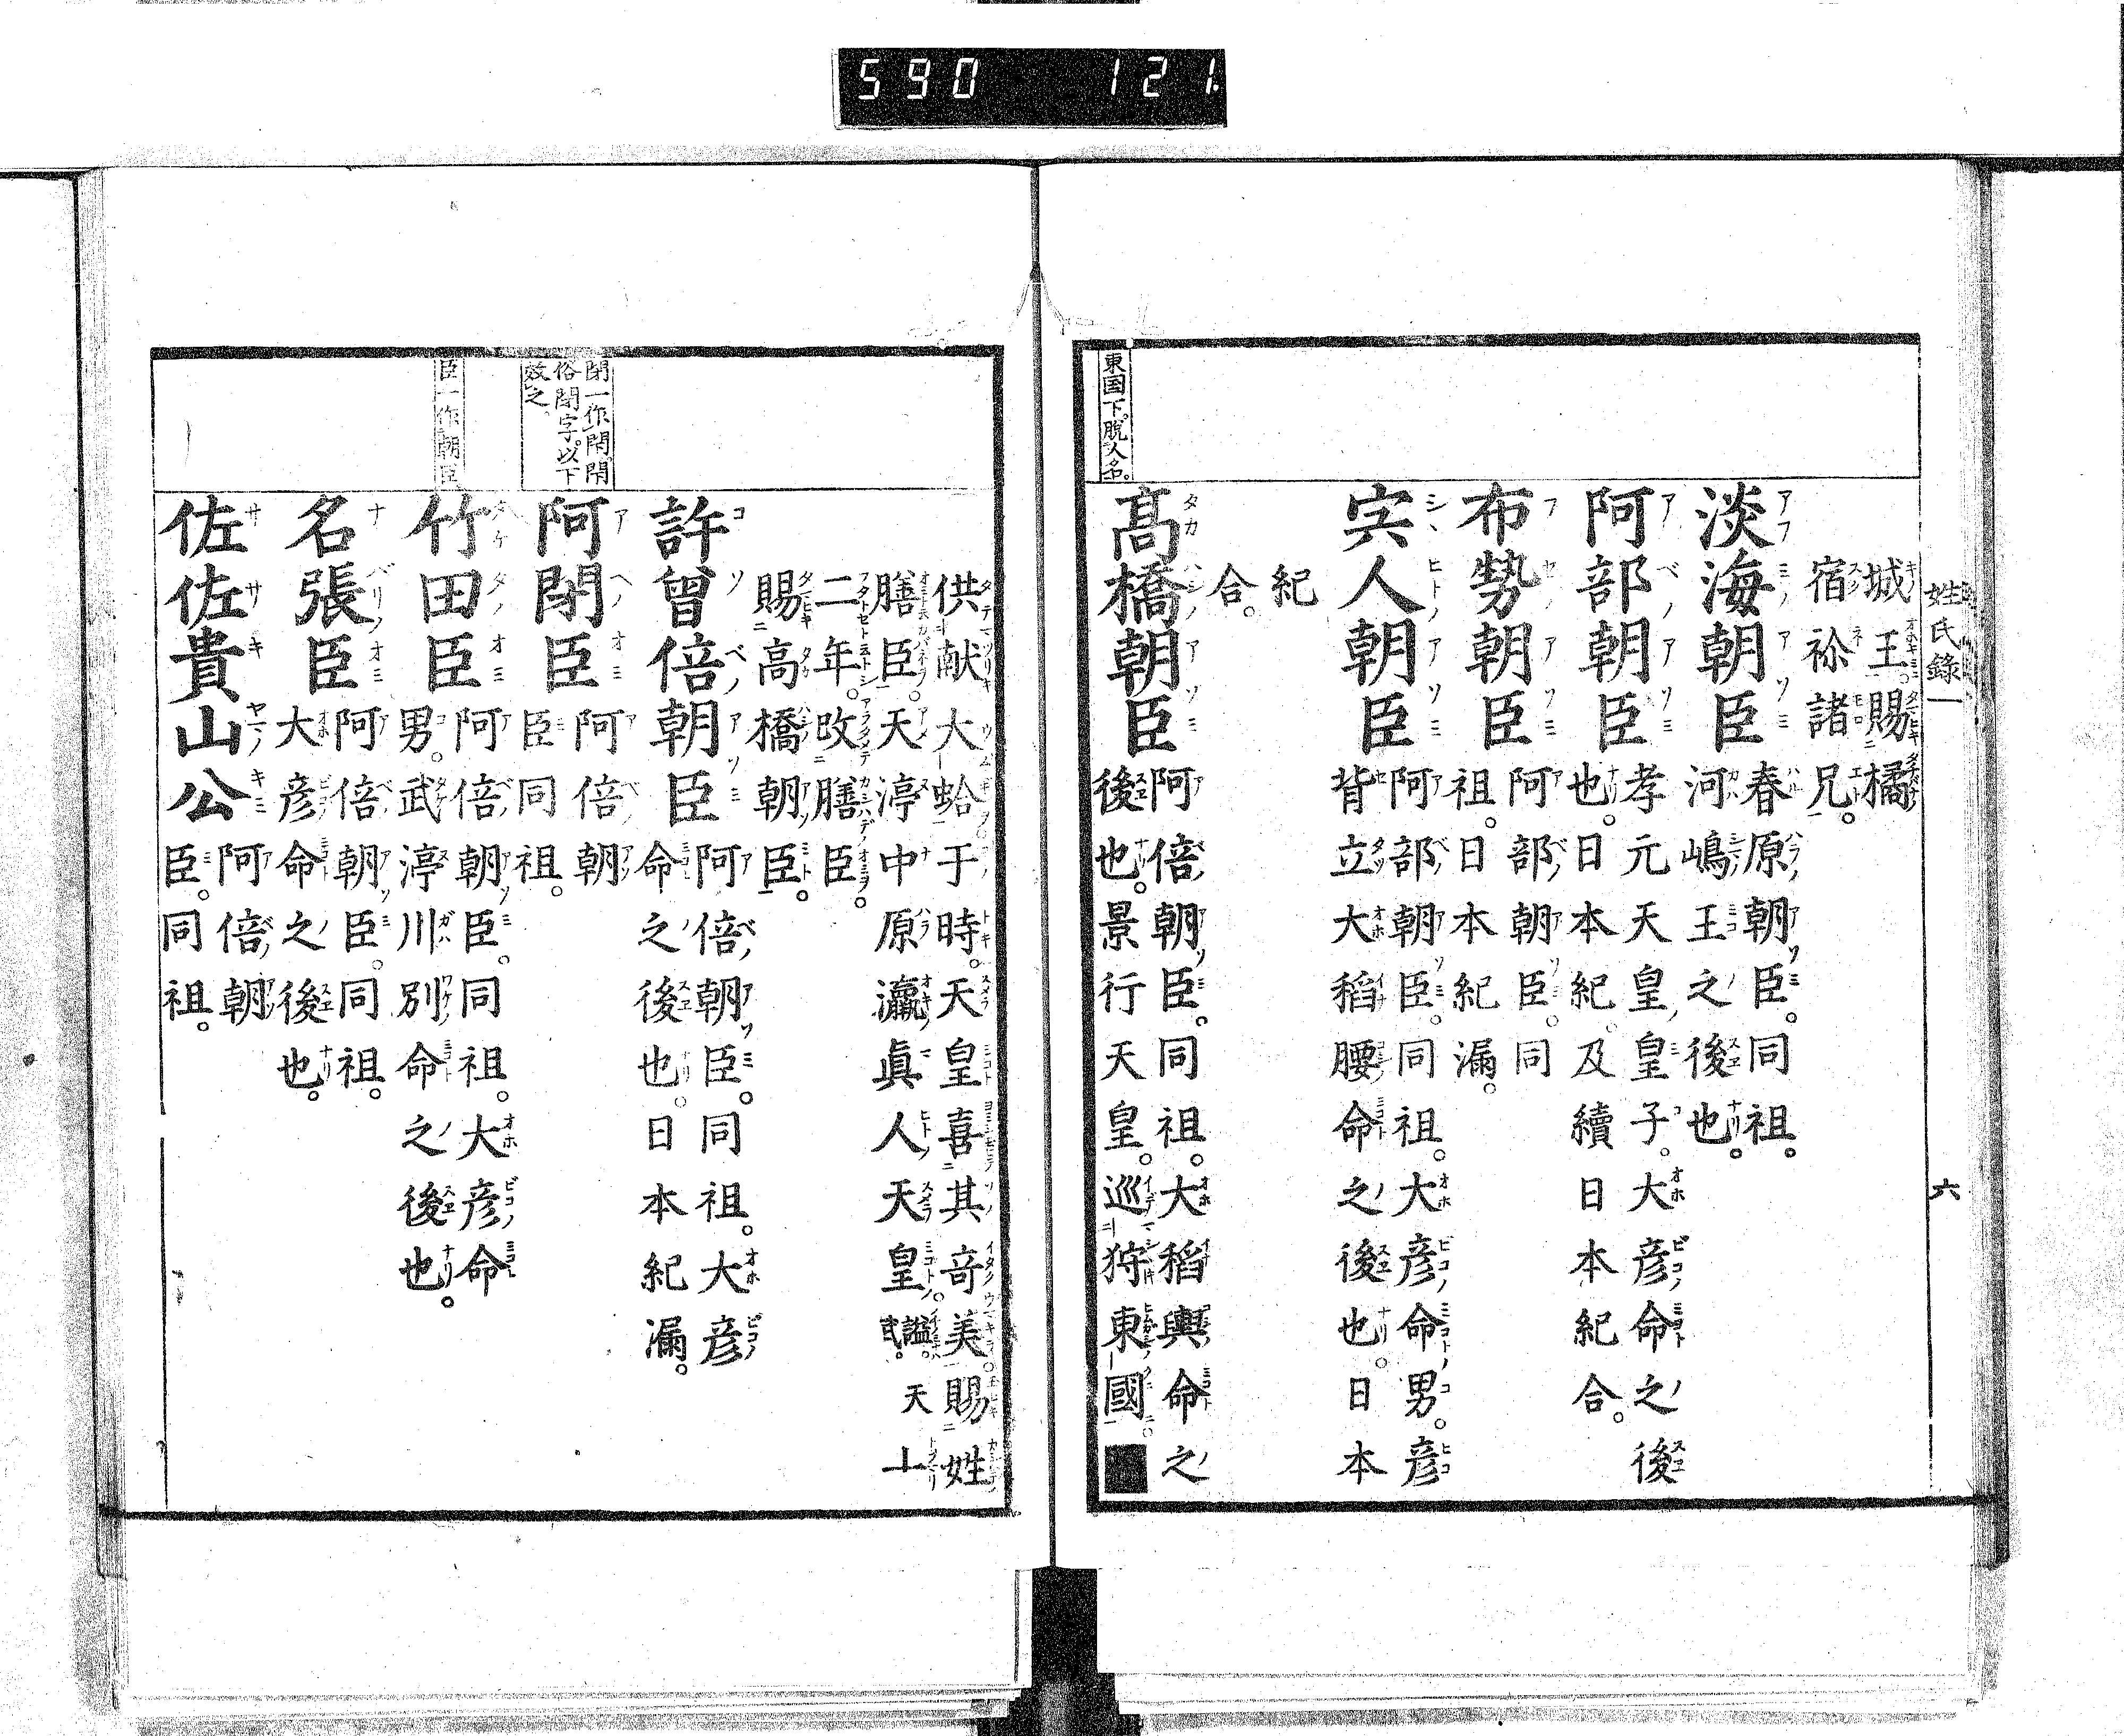 590 121.
姓氏錄一 六
城王。賜橘
宿祢諸兄。
淡海朝臣 春原朝臣。同祖。
河嶋王之後也。
阿部朝臣 孝元天皇皇子。大彦命之後
也。日本紀及續日本紀合。
布勢朝臣 阿部朝臣。同
祖。日本紀漏。
宍人朝臣 阿部朝臣。同祖。大彦命男。彦
背立大稻腰命之後也。日本
紀
合。
東国下。脱人名。
髙橋朝臣 阿倍朝臣。同祖。大稻輿命之
後也。景行天皇。巡狩東國■
供献大蛤。于時。天皇喜其奇美。賜姓
膳臣。天渟中原瀛眞人天皇。謚。天武。十
二年。改膳臣。
賜高橋朝臣。
許曾倍朝臣 阿倍朝臣。同祖。大彦
命之後也。日本紀漏。
閇一作閈。閈
俗閇字。以下
效之。
阿閇臣 阿倍朝
臣同祖。
臣一作朝臣
竹田臣 阿倍朝臣。同祖。大彦命
男。武渟川別命之後也。
名張臣 阿倍朝臣。同祖。
大彦命之後也。
佐佐貴山公 阿倍朝
臣。同祖。